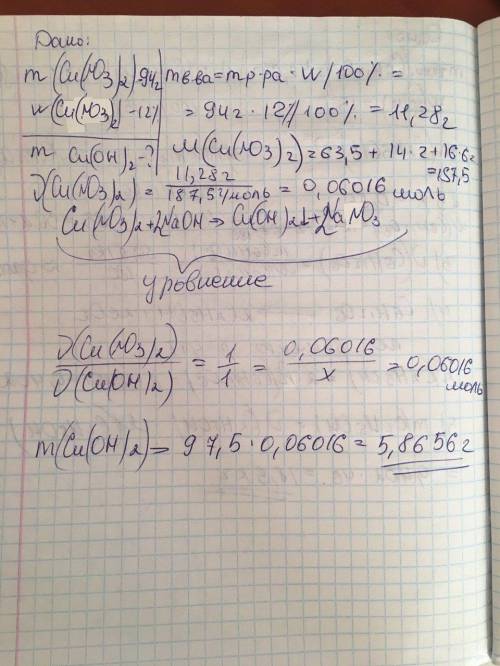 Дано:
m (Cu(NO3)2)-94г m в.ва = m р-ра · W/100% =
w(Cu(NO3)2)-12% = 94г · 12%/100% = 11,28г
m Cu(OH)2-? M(Cu(NO3)2)=63,5 + 14·2+16·6=
=187,5
ν(Cu(NO3)2) = 11,28г / 187,5г/моль = 0,06016 моль
Cu(NO3)2+2NaOH ⇒ Cu(OH)2↓+2NaNO3
уровнение
ν(Cu(NO3)2) / ν(Cu(OH)2) = 1/1 = 0,06016 / x = 0,06016 моль
m(Cu(OH)2)= 97,5·0,06016= 5,8656г